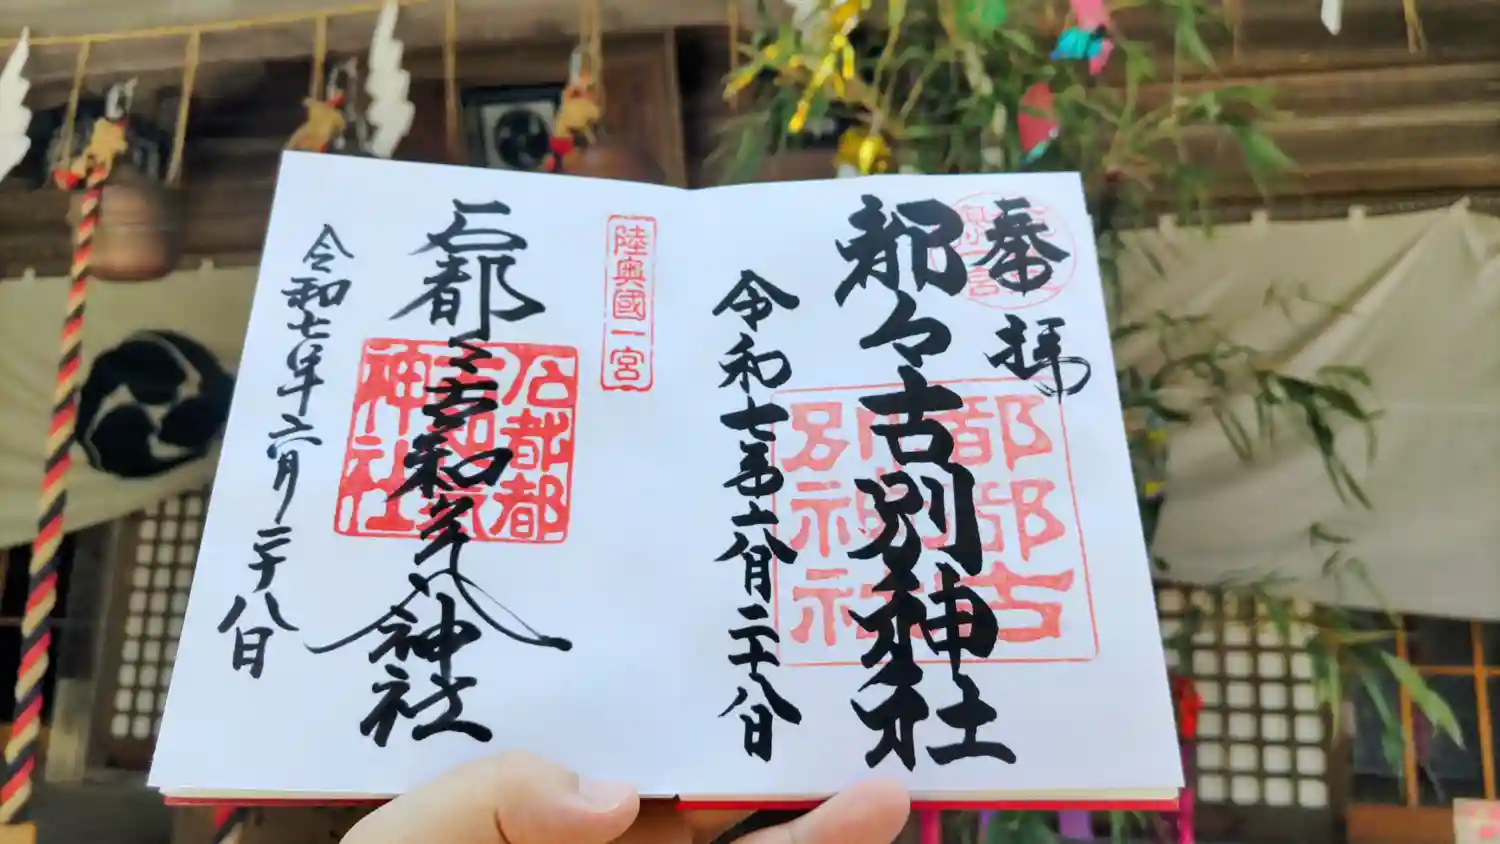 奉拝
都々古別神社
都都古
別神社
令和七年六月二十八日
陸奥國一宮
石都々古和気神社
石都都
古和氣
神社
令和七年六月二十八日